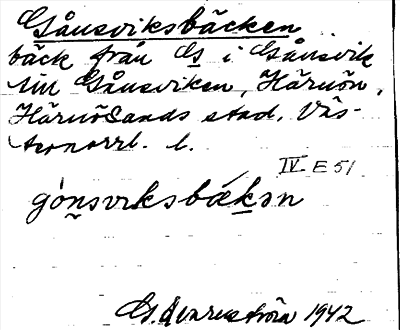 Gånsviksbäcken
bäck från G i Gånsvik
till Gånsviken, Härnön,
Härnösands stad, Väs-
ternorrl. l.
IV E 51
gó̱nsvɩksbäḵən
1942